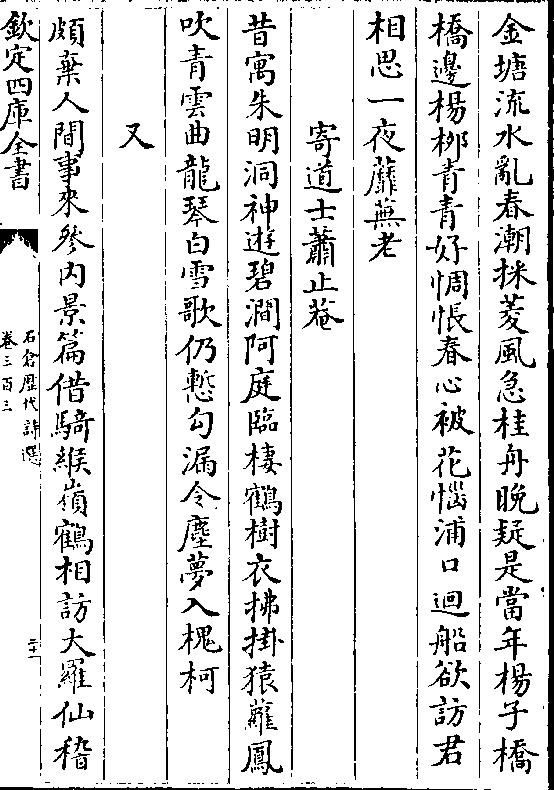 金塘流水亂春潮採菱風急桂舟晚疑是當年楊子橋
橋邊楊柳青青好惆悵春心被花惱浦口迴船欲訪君
相思一夜蘼蕪老
寄道士蕭止菴
昔寓朱明洞神遊碧澗阿庭臨棲鶴樹衣拂掛猿蘿鳳
吹青雲曲龍琴白雪歌仍慙勾漏令塵夢入槐柯
又
頗棄人間事來參内景篇借騎緱嶺鶴相訪大羅仙稽
欽定四庫全書
石倉歷代詩選
卷三百三
二十一